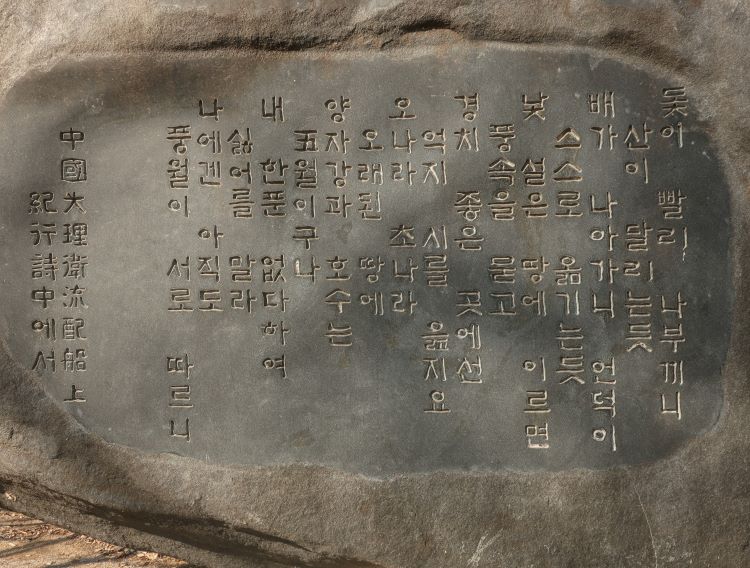 돛이 빨리 나부끼니
산이 달리는듯
배가 나아가니 언덕이
스스로 옮기는듯
낯 설은 땅에 이르면
풍속을 묻고
경치 좋은 곳에선
억지 시를 읊지요
오나라 초나라
오래된 땅에
양자강과 호수는
五월이구나
내 한푼 없다하여
싫어를 말라
나에겐 아직도
풍월이 서로 따르니
中國大理衛流配船上
紀行詩中에서